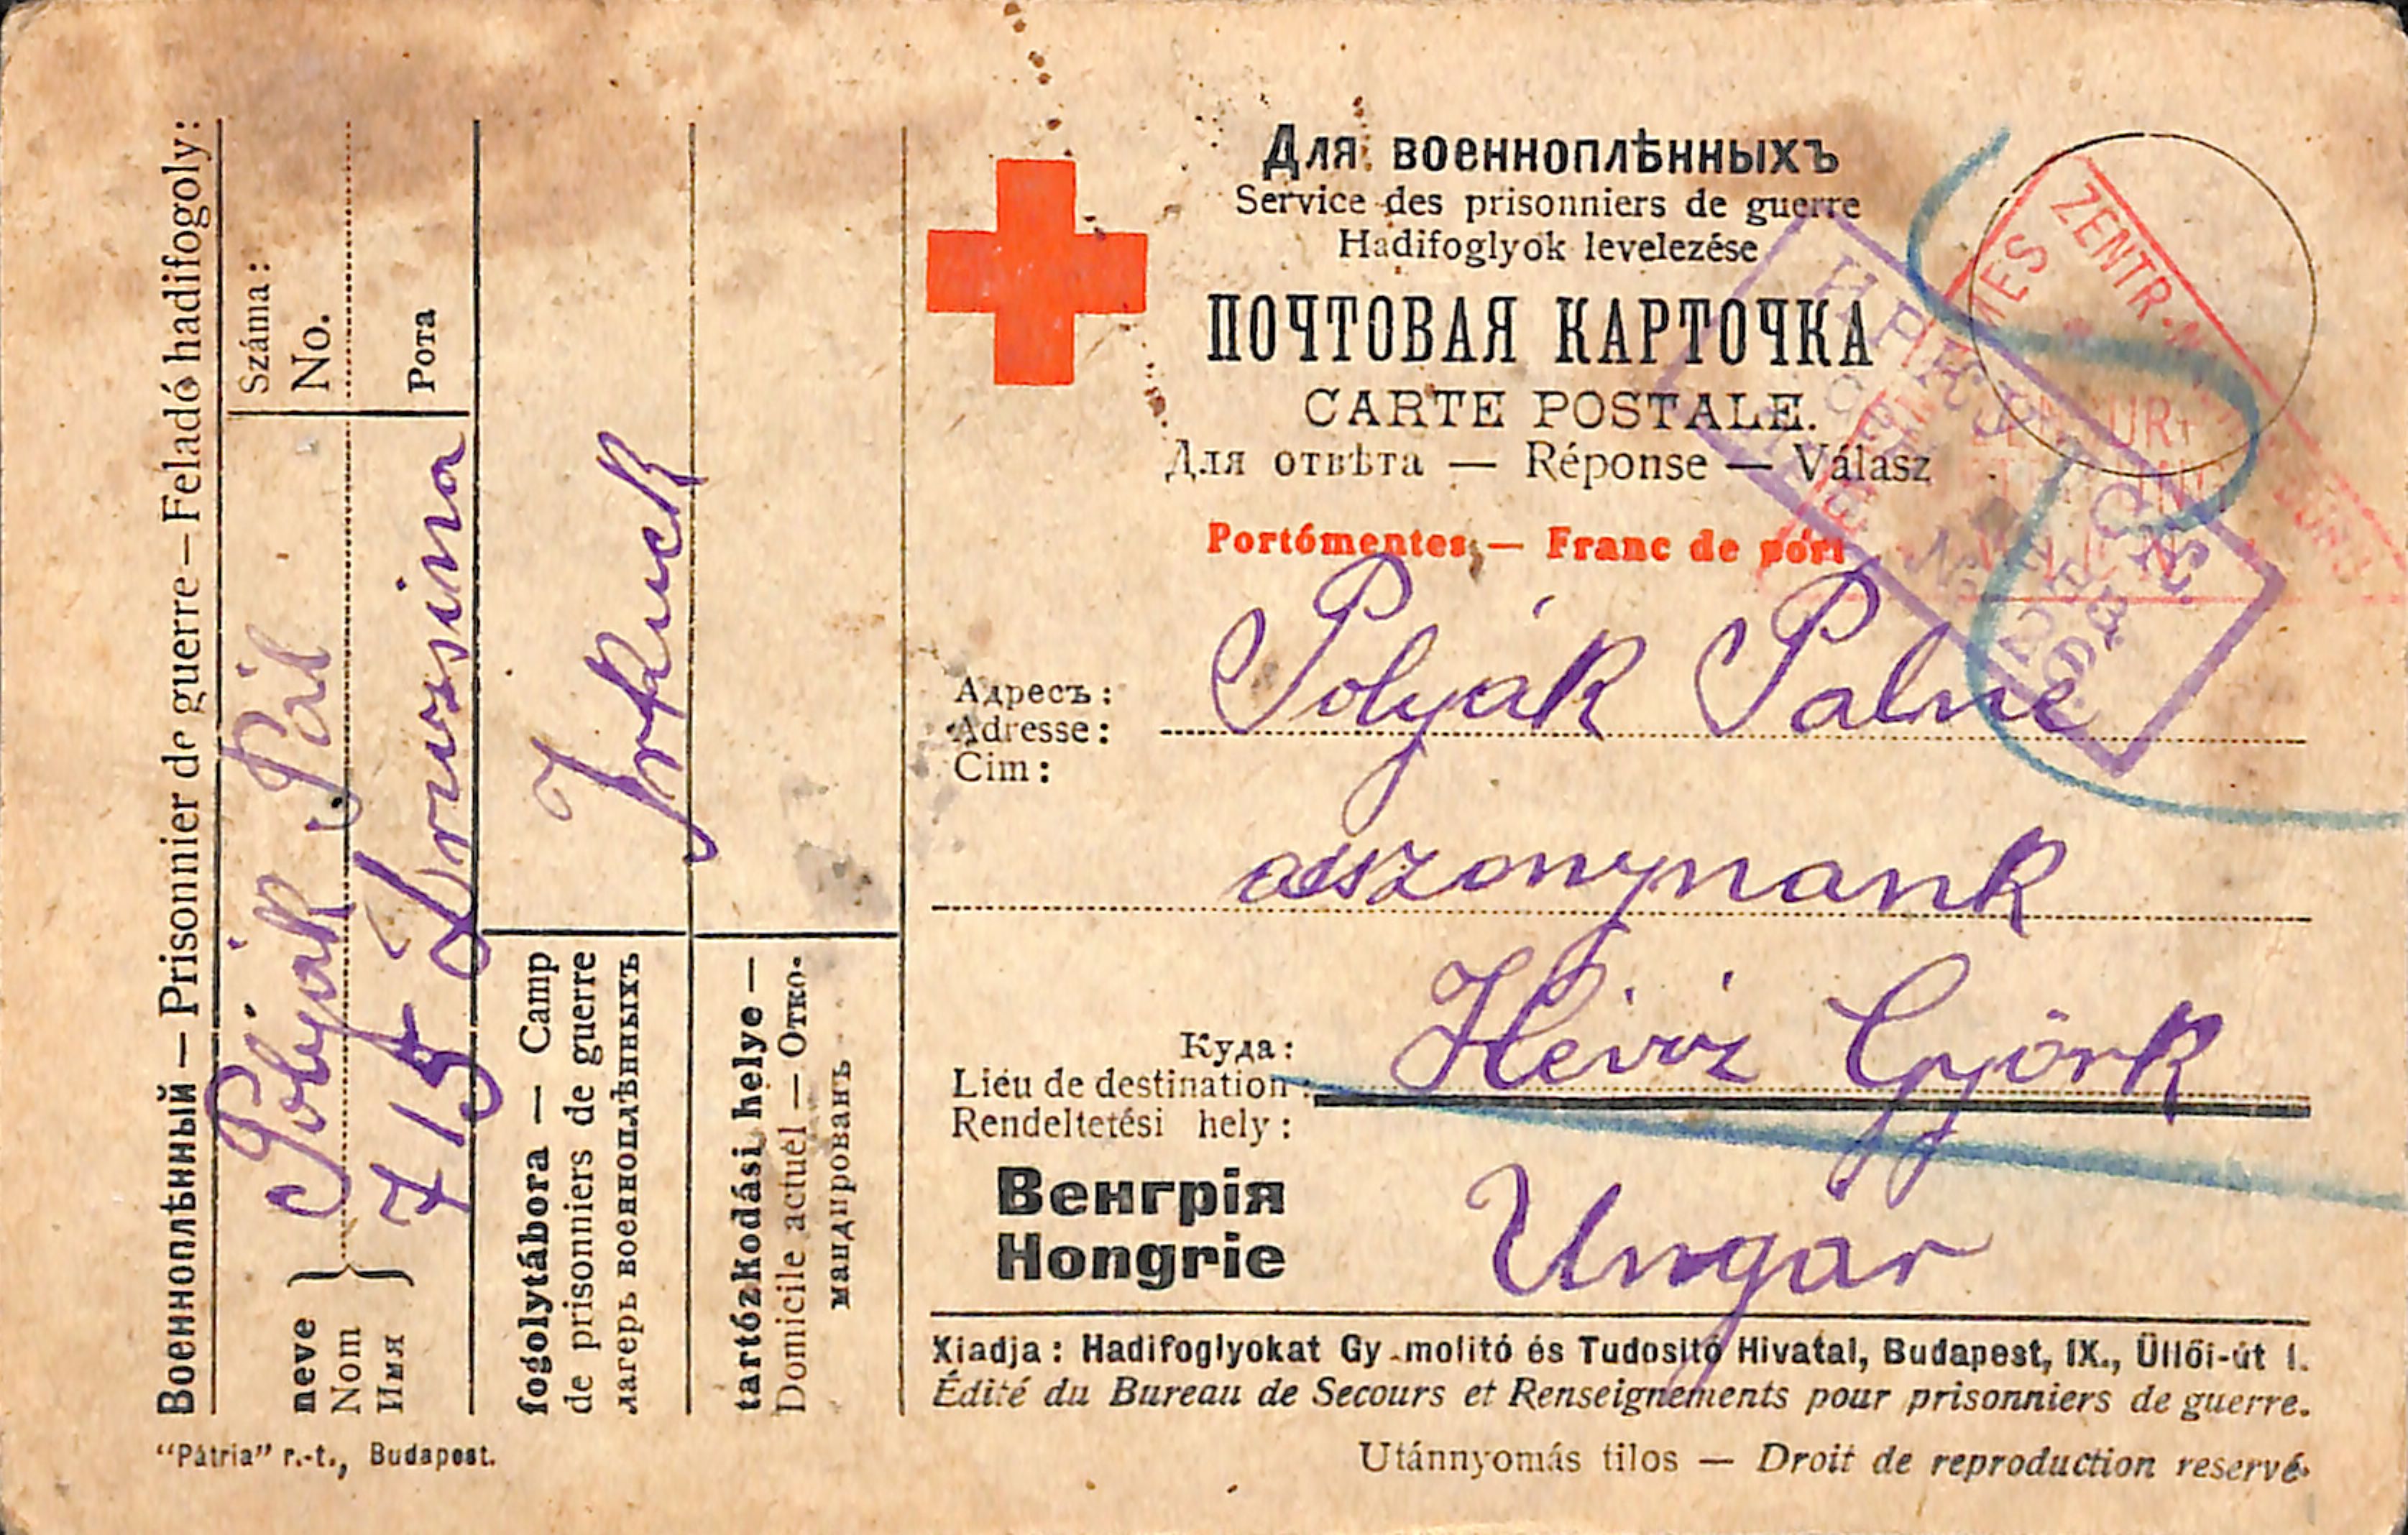 Военноплѣнный — Prisonnier de guerre — Feladó hadifogoly:
Száma:
No.
Рота
neve
Nom
Имя
Polyák Pál
715
fogolytábora — Camp
de prisonniers de guerre
лагерь военноплѣнныхъ
Irkuck
tartózkodási helye —
Domicile actuel — Отко-
мандированъ
"Pátria" r.-t., Budapest.
Для военноплѣнныхъ
Service des prisonniers de guerre
Hadifoglyok levelezése
ПОЧТОВАЯ КАРТОЧКА
CARTE POSTALE.
Для отвѣта — Réponse — Válasz
Portómentes — Franc de port
ZENTR.
Адресъ:
Adresse:
Cim:
Polyák Palné
asszonynank
Куда:
Lieu de destination:
Rendeltetési hely:
Hévíz Györk
Венгрія
Hongrie
Ungar
Kiadja: Hadifoglyokat Gy molitó és Tudositó Hivatal, Budapest, IX., Üllői-út 1.
Édité du Bureau de Secours et Renseignements pour prisonniers de guerre.
Utánnyomás tilos — Droit de reproduction reservé